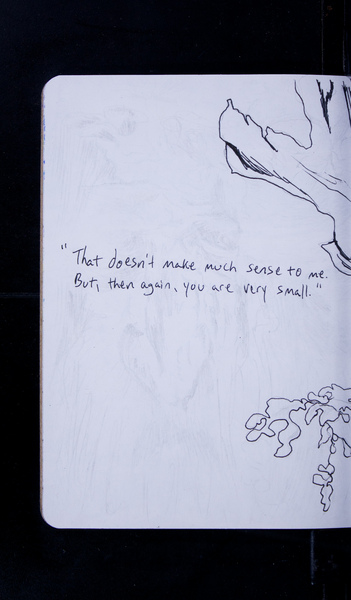 "That doesn't make much sense to me.
But, then again, you are very small."